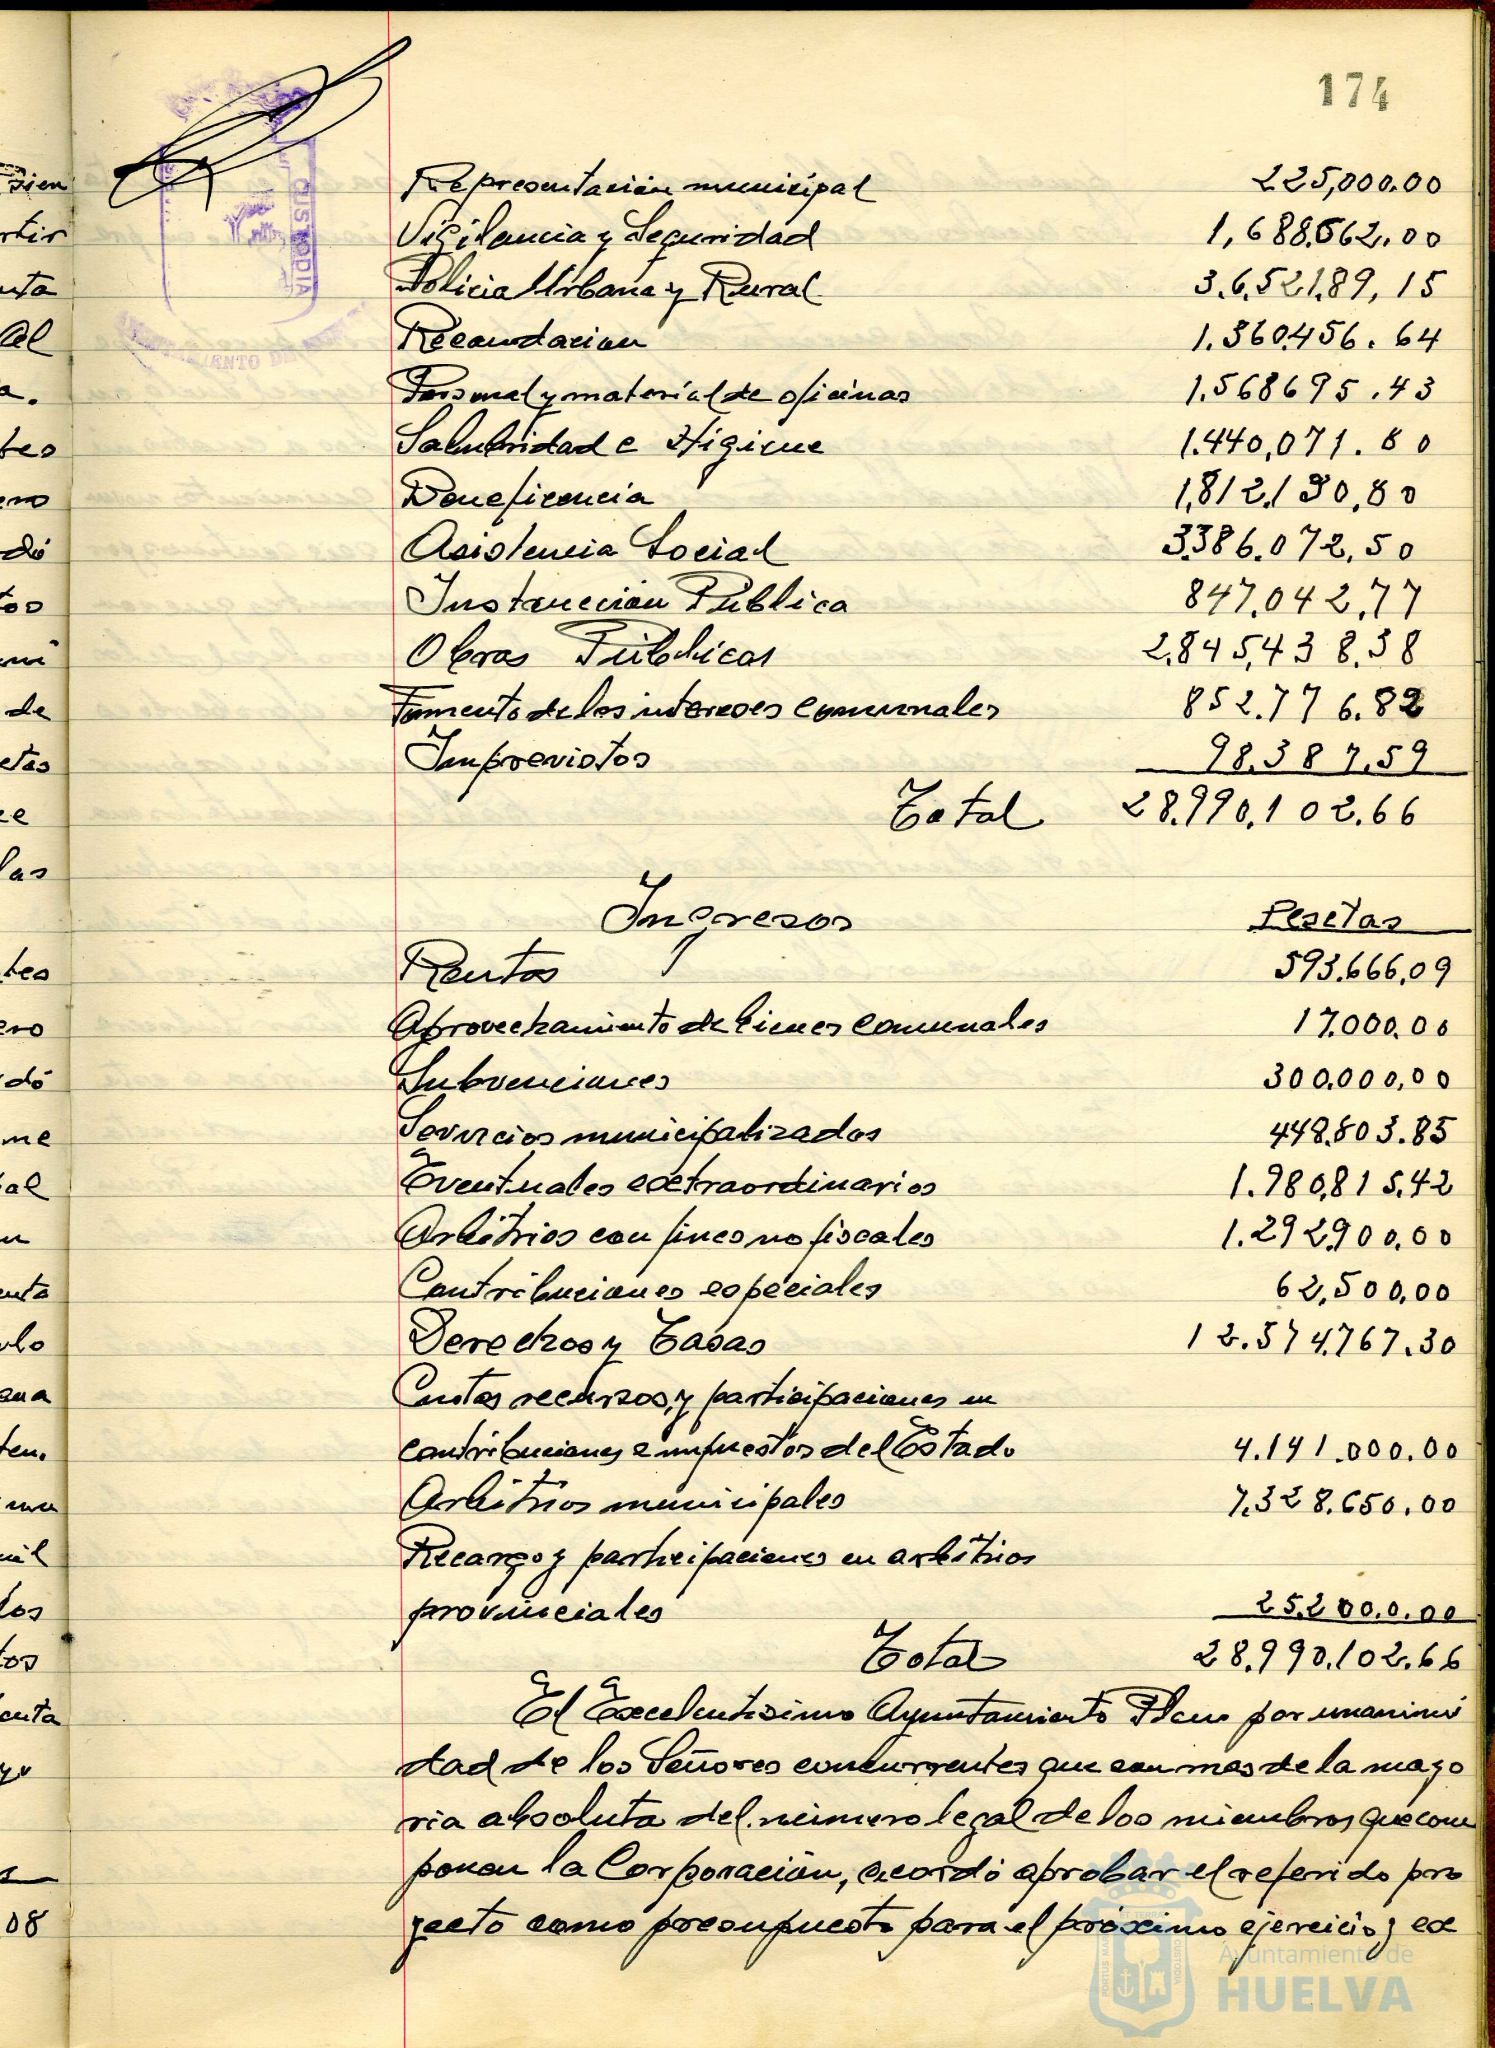 174
Representación municipal 225,000.00
Vigilancia y Seguridad 1,688.562.00
Policia Urbana y Rural 3.6.52189,15
Recaudacion 1.360.456.64
Personal y material de oficinas 1.568695.43
Salubridad e Higiene 1.440,071.80
Beneficencia 1,812.130,80
Asistencia Social 3.386.072,50
Instrucción Pública 847.042,77
Obras Públicas 2.845,438,38
Fomento de los intereses comunales 852.776.82
Imprevistos 98.387,59
Total 28.990,102.66
Ingresos Pesetas
Rentas 593.666,09
Aprovechamiento de bienes comunales 17.000.00
Subvenciones 300.000,00
Servicios municipalizados 448.803.85
Eventuales extraordinarios 1.980,815,42
Arbitrios con fines no fiscales 1.292.900,00
Contribuciones especiales 62,500,00
Derechos y Tasas 12.374.767.30
Cuotas recursos, y participaciones en
contribuciones e impuestos del Estado 4.141.000.00
Arbitrios municipales 7.328.650.00
Recargo y participaciones en arbitrios
provinciales 25.2000.0.00
Total 28.990.102.66
El Excelentisimo Ayuntamiento Pleno por unanimi
dad de los Señores concurrentes que son mas de la mayo
ria absoluta del número legal de los miembros que com
ponen la Corporación, acordó aprobar el referido pro
yecto como presupuesto para el próximo ejercicio y ex
CUSTODIA
Ayuntamiento de
HUELVA